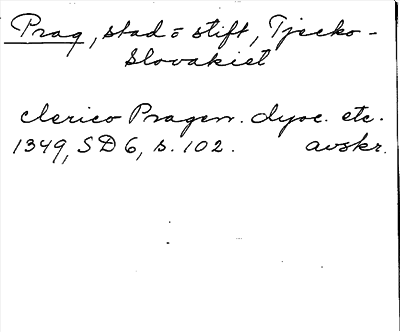 Prag, stad o stift, Tjecko-
slovakiet
clerico Pragen. dyoc. etc.
1349, SD 6, s. 102. avskr.